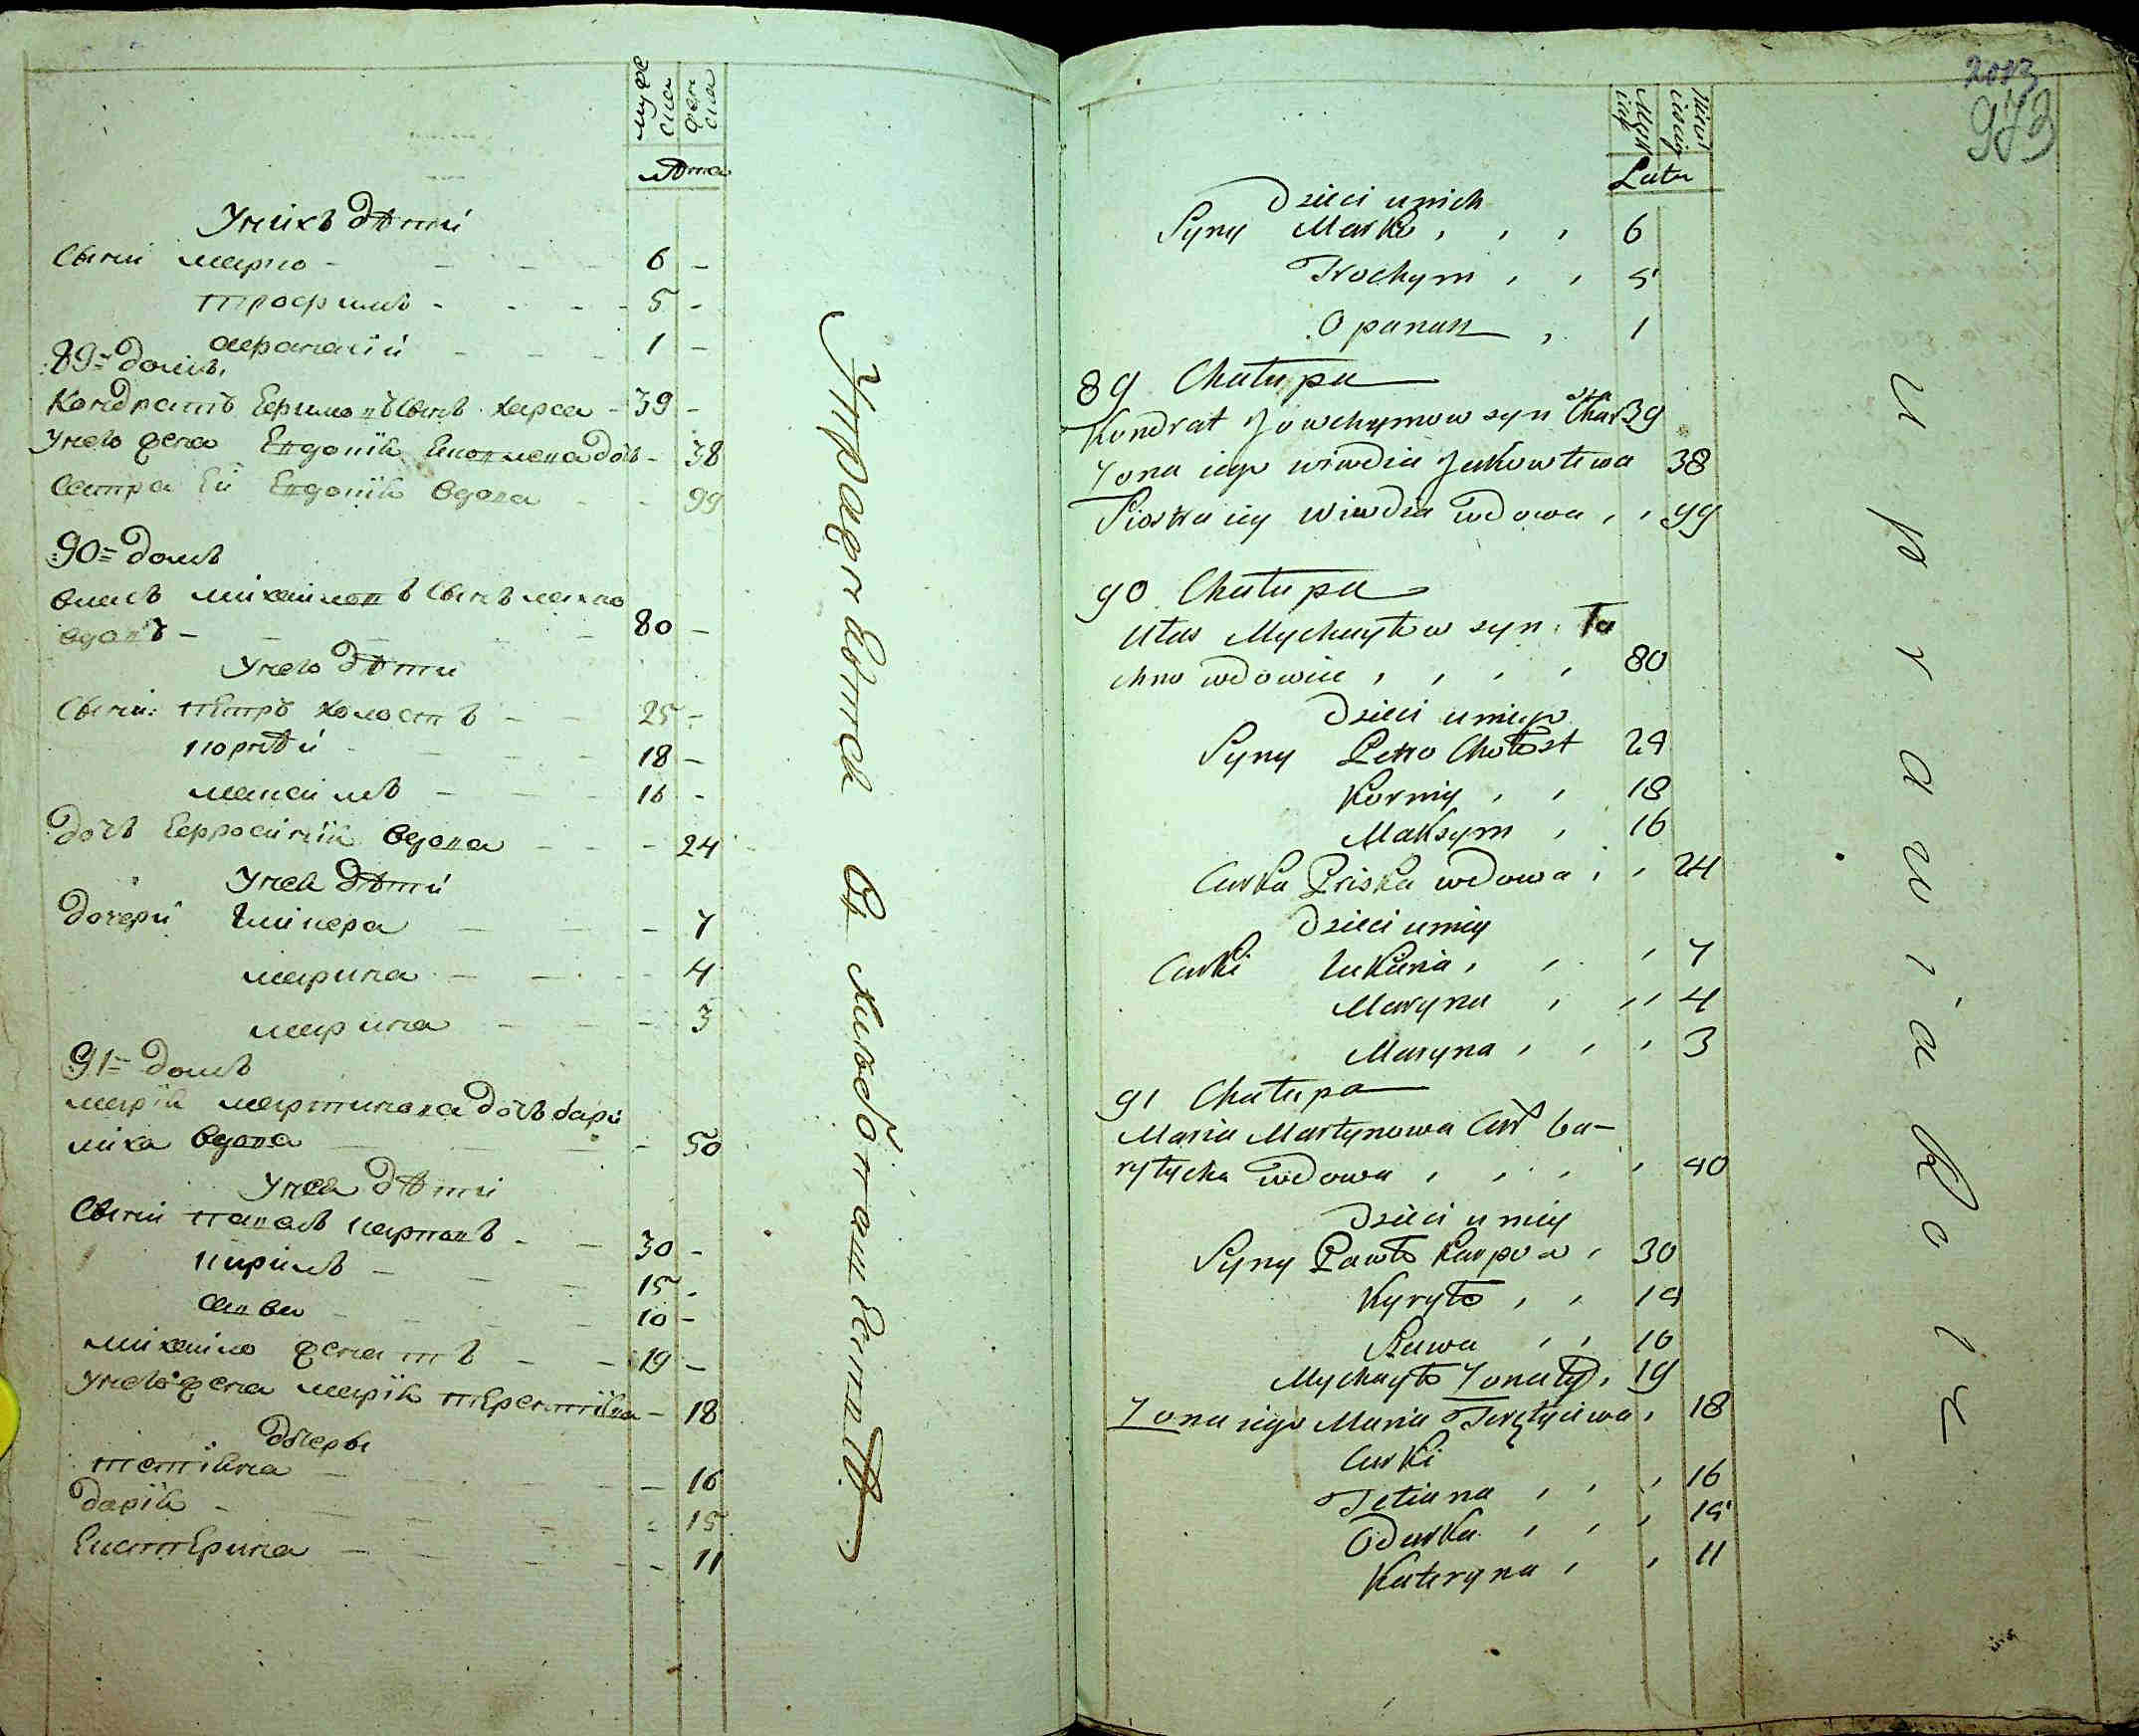 муже
ска
жен
ска
лѣта
У нихъ дѣти
Сыни марко - 6 -
трофимъ - 5 -
афанасiй - 1 -
89= домъ
Кондратъ Ефимовъ сынъ харса - 39 -
У него жена Евдокiя Яковлева дочь - 38
Сестра Ей Евдокiя вдова - 99
90= домъ
власъ михайловъ сынъ махно
вдовъ - 80 -
У него дѣти
Сыни: петръ холостъ - 25 -
корнѣй - 18 -
максимъ - 16 -
дочь Ефросинiя вдова - 24
У ней дѣти
дочери гликера - 7
марина - 4
марина - 3
91= домъ
марiя мартинова дочь бари
лиха вдова - 50
У нея дѣти
Сыни павелъ карповъ - 30 -
кирилъ - 15 -
савва - 10 -
михайло женатъ - 19 -
У него жена марiя терентiева - 18
дочеры
тетiяна - 16
дарiя - 15
Екатерина - 11
Упражняются въ хлѣбопашествѣ
2013
973
Męsk
iey
Żeńs
kiey
Lata
Dzieci u nich
Syny Marko 6
Trochym 5
Opanas 1
89 Chałupa
Kondrat Jowchymow syn Char 39
sa
Żona iego Wiwdia Jakowlewa 38
Siostra iey Wiwdia wdowa 99
90 Chałupa
Ułas Mychayłow syn
chno wdowiec 80
Dzieci u niego
Syny Petro Chołost 25
Korniy 18
Maksym 16
Curka Priska wdowa 24
Dzieci u niey
Curki Łukiria 7
Maryna 4
Maryna 3
91 Chałupa
Maria Martynowa Cur ba-
ryłycha wdowa 50
Dzieci u niey
Syny Pawło Karpow 30
Kyryło 15
Sawa 10
Mychayło Żonaty 19
Żona iego Maria 18
Curki
Tetiana 16
Odarka 15
Kateryna 11
uprawia Role